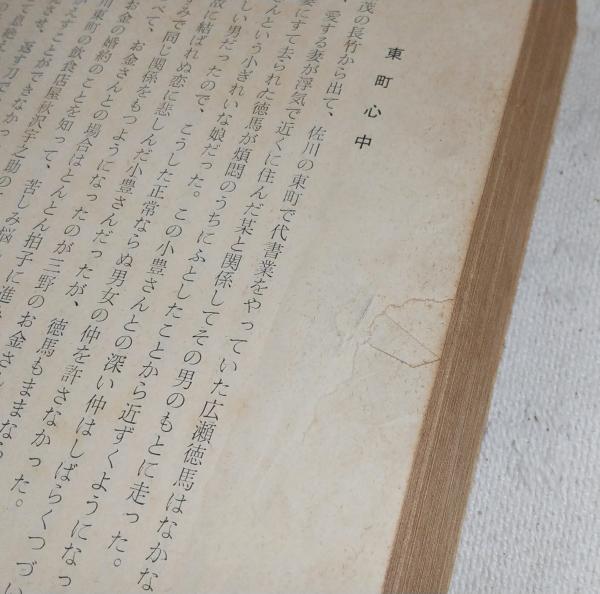 東町心中
茂の長竹から出て、佐川の東町で代書業をやっていた広瀬徳馬はなかな
、愛する妻が浮気で近くに住んだ某と関係してその男のもとに走った。
妻にすて去られた徳馬が煩悶のうちにふとしたことから近ずくようになっ
という小ぎれいな娘だった。この小豊さんとの深い仲はしばらくつづい
しい男だったので、こうした正常ならぬ男女の仲を許さなかった。
に結ばれぬ恋に悲しんだ小豊さんだったが、徳馬もままなら
みで同じ関係をもつようになったのが三野のお金さん
べて、お金さんとの場合はとんとん拍子に進
お金の婚約のことを知って、苦しみ悩
川東町の飲食店屋秋沢宇之助の
えすことができなかっ
させ、返す刀で